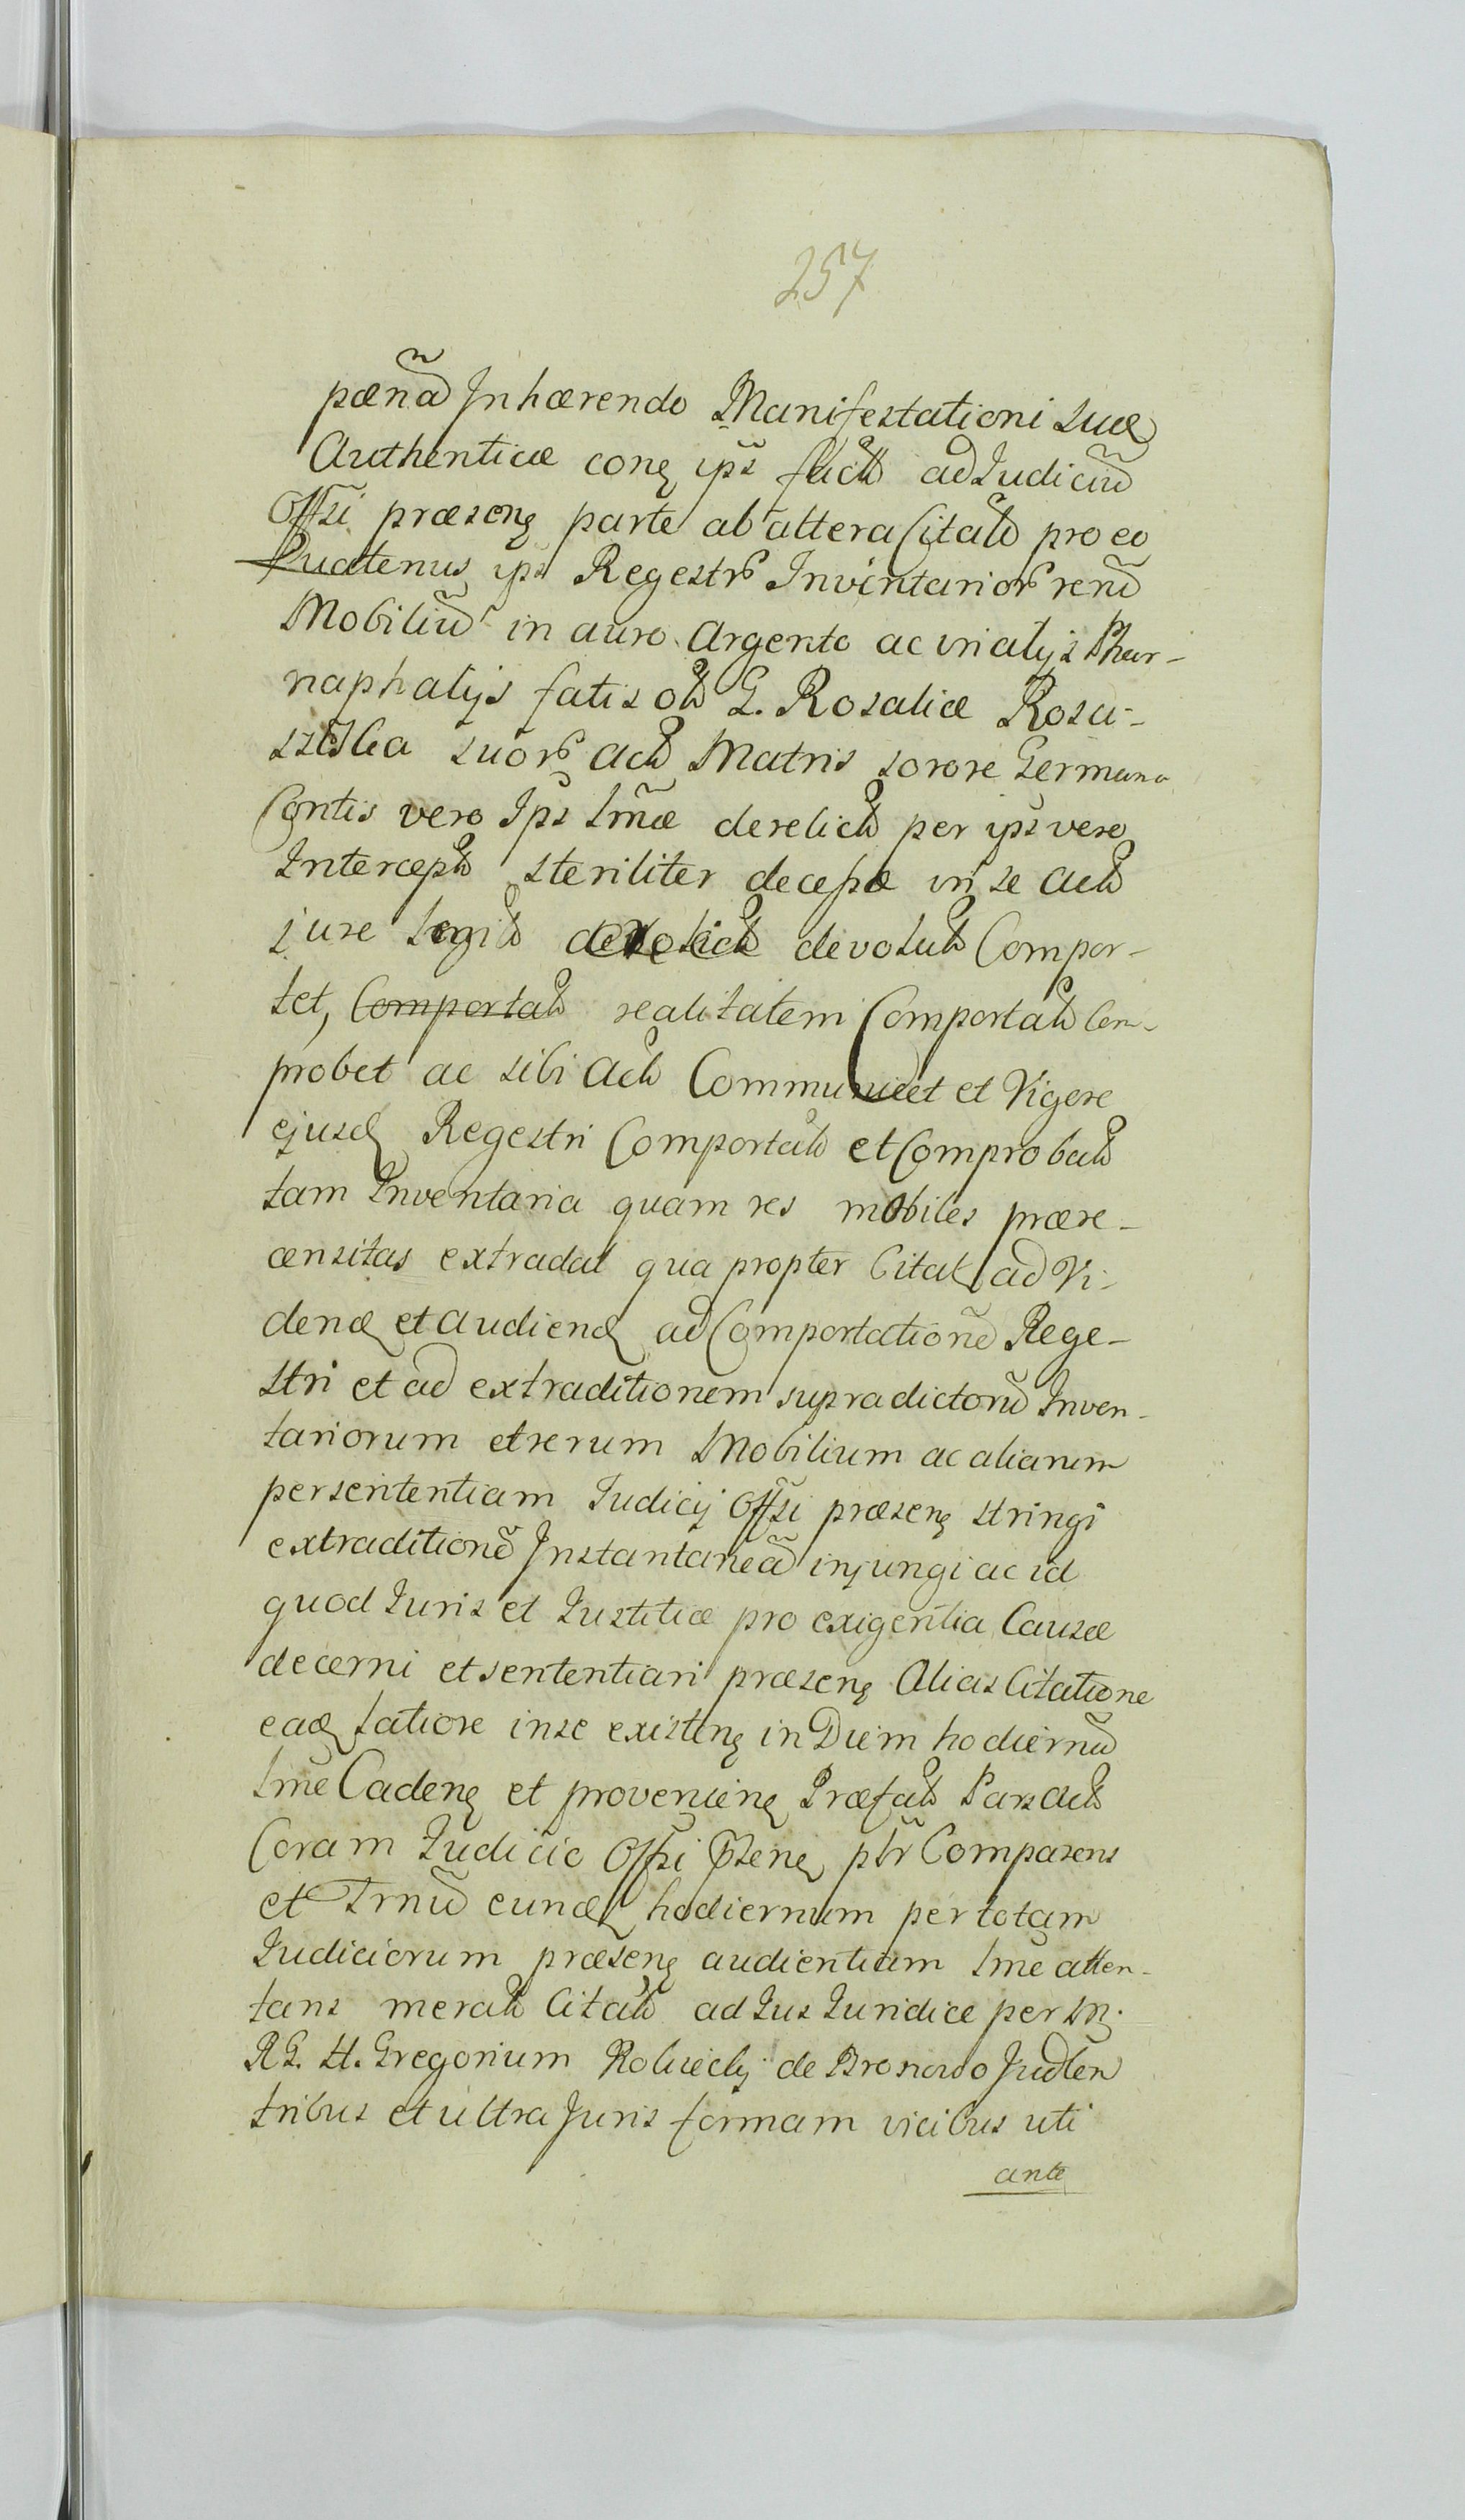 257
pænã Inhærendo Manifestationi suæ
Authenticæ conȩ ips fact ad Judiciũ
Offsi præsenȩ parte ab altera Citat pro eo
Quatenus ips Regestr Inventarior rerũ
Mobiliũ in auro Argento ac in alijs Phar-
naphalijs fatis ol G. Rosaliæ Rosa-
suor Act Matris sorore Germana
vero Ips Imæ derelict per ips vero
Intercept steriliter decessæ in se Act
jure devolut Compor-
tet, Comportat realitatem Comportat Com-
probet ac sibi Act Communicet et Vigore
ejusd Regestri Comportat et Comprobat
tam Inventaria quam res mobiles prære-
censitas extradat qua propter Citat ad Vi-
dend et audiend ad Comportationẽ Rege-
stri et ad extraditionem supradictorũ Inven-
tariorum et rerum Mobilium ac aliarum
per sententiam Judicij Offsi præsenȩ stringi
extraditionẽ Instantaneã injungi ac id
quod Juris et Justitiæ pro exigentia Causæ
decerni et sententiari præsenȩ Alias Citatione
ead latiore in se existenȩ in Diem hodiernũ
Ime Cadenȩ et provenienȩ Præfat Pars Act
Coram Judicio Offsi psenȩ ptr Comparens
et Trnũ eund hodiernum per totam
Judiciorum præsenȩ audientiam Ime atten-
tans Citat ad Jus Juridice per M.
RG. H. Gregorium de Bronowo Judlen
tribus et ultra Juris formam vicibus uti
ante